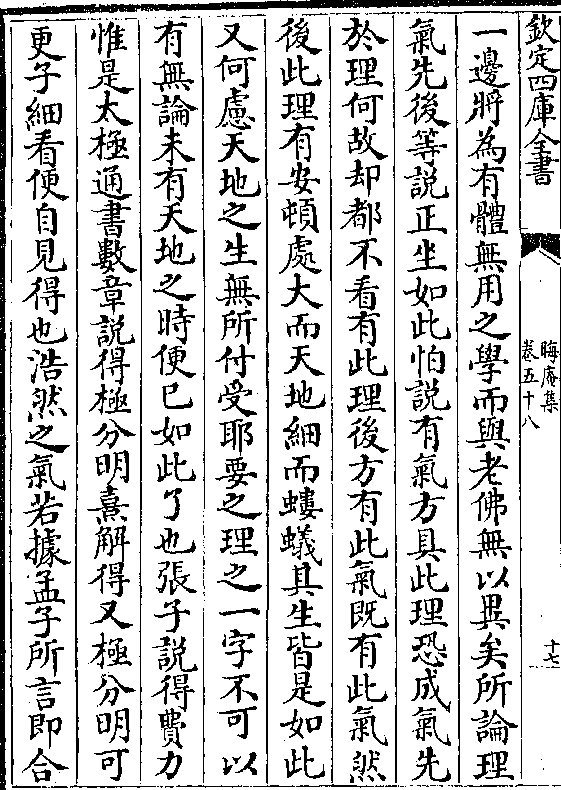 欽定四庫全書
晦庵集
卷五十八
十七
一邊將為有體無用之學而與老佛無以異矣所論理
氣先後等説正坐如此怕説有氣方具此理恐成氣先
於理何故却都不看有此理後方有此氣既有此氣然
後此理有安頓處大而天地細而螻蟻其生皆是如此
又何慮天地之生無所付受耶要之理之一字不可以
有無論未有天地之時便已如此了也張子説得費力
惟是太極通書數章説得極分明熹解得又極分明可
更子細看便自見得也浩然之氣若據孟子所言即合